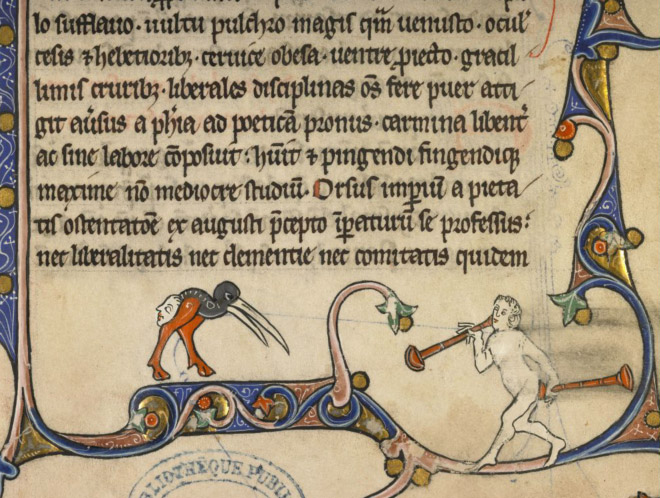 lo sufflauo · uultu pulchro magis qm̄ uenusto · ocul̉
cesis ⁊ hebetioribꝫ · ceruice obesa · uentre ꝓiecto · gracil
limis cruribꝫ · liberales disciplinas oīs fere puer atti
git aūsus a phīa ad poeticā pronus · carmina libent̉
ac sine labore cōposuit : huīt ⁊ pingendi fingendiqꝫ
maxime nō mediocre studiū · Orsus imꝑiū a pieta
tis ostentatōe ex augusti p̄cepto īꝑaturū se professus :
nec liberalitatis nec clementie nec comitatis quidem
BIBLIOTHÈQUE PUBLI